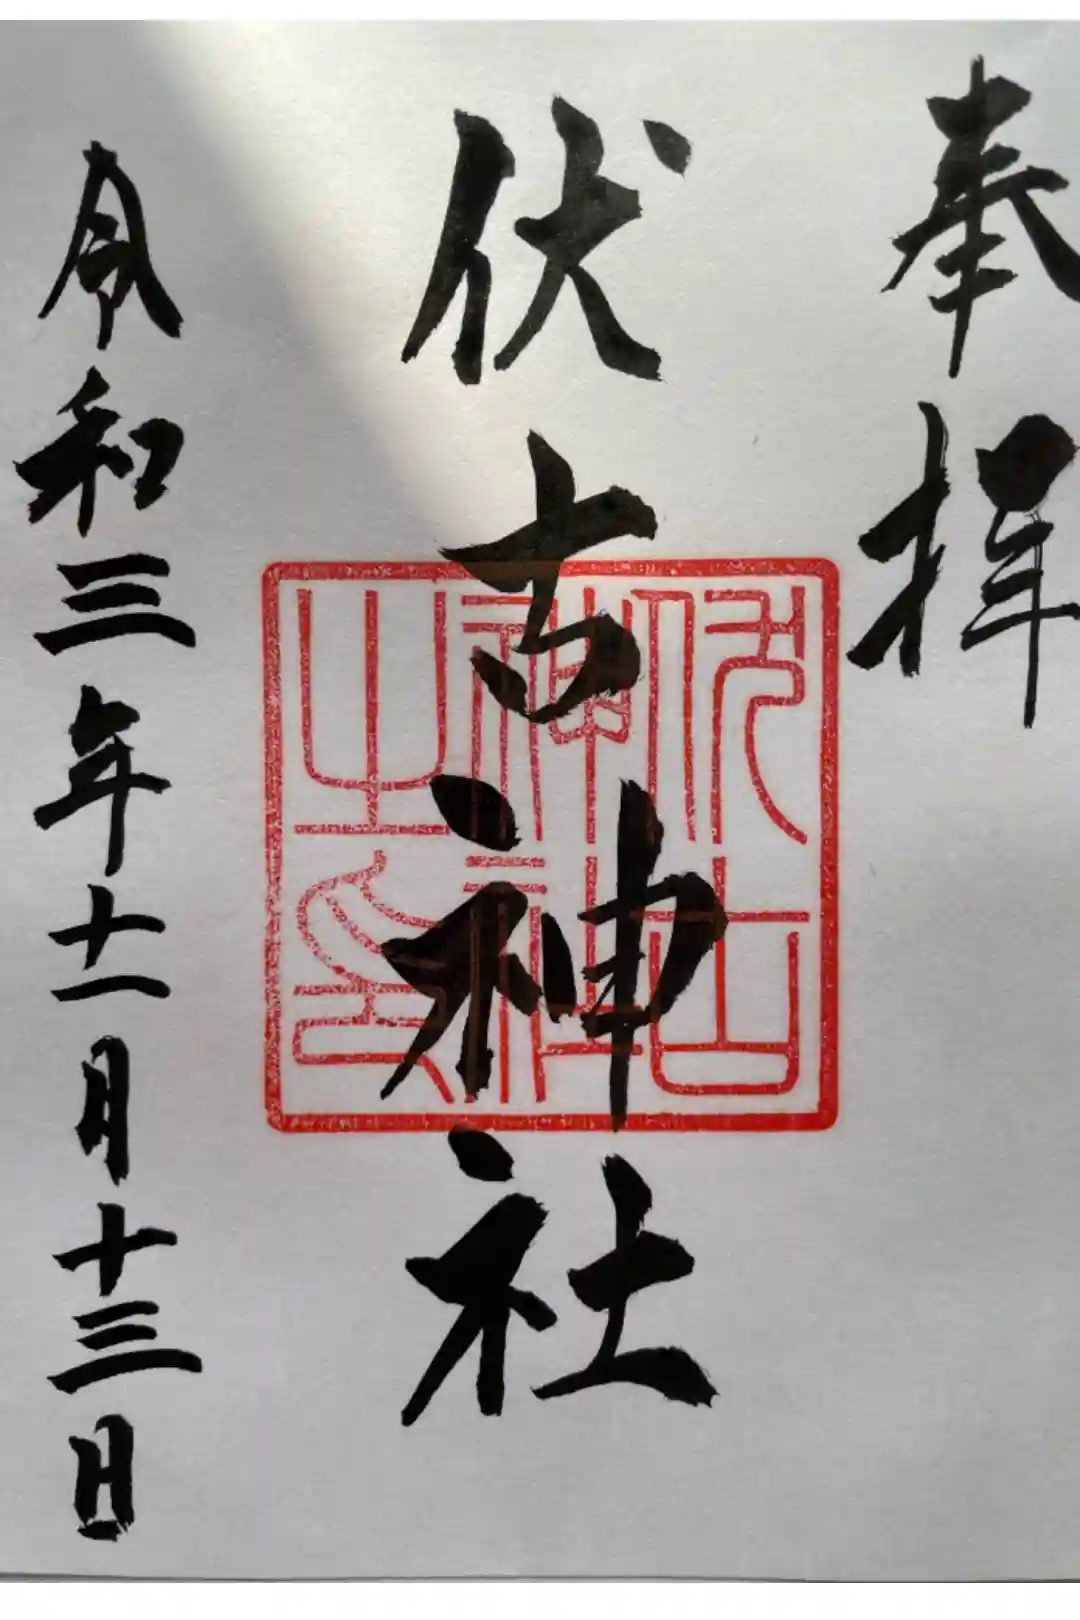 奉拝
伏古神社
伏古
神社
之印
令和三年十一月十三日